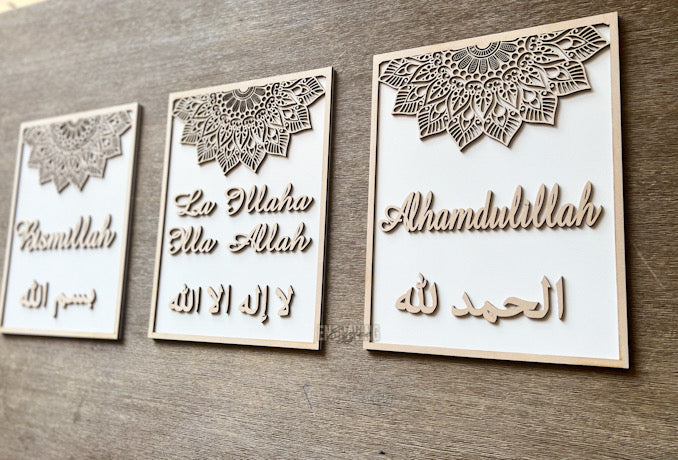 Bismillah
بسم الله
La Illaha
Illa Allah
لا إله الا الله
Alhamdulillah
الحمد لله